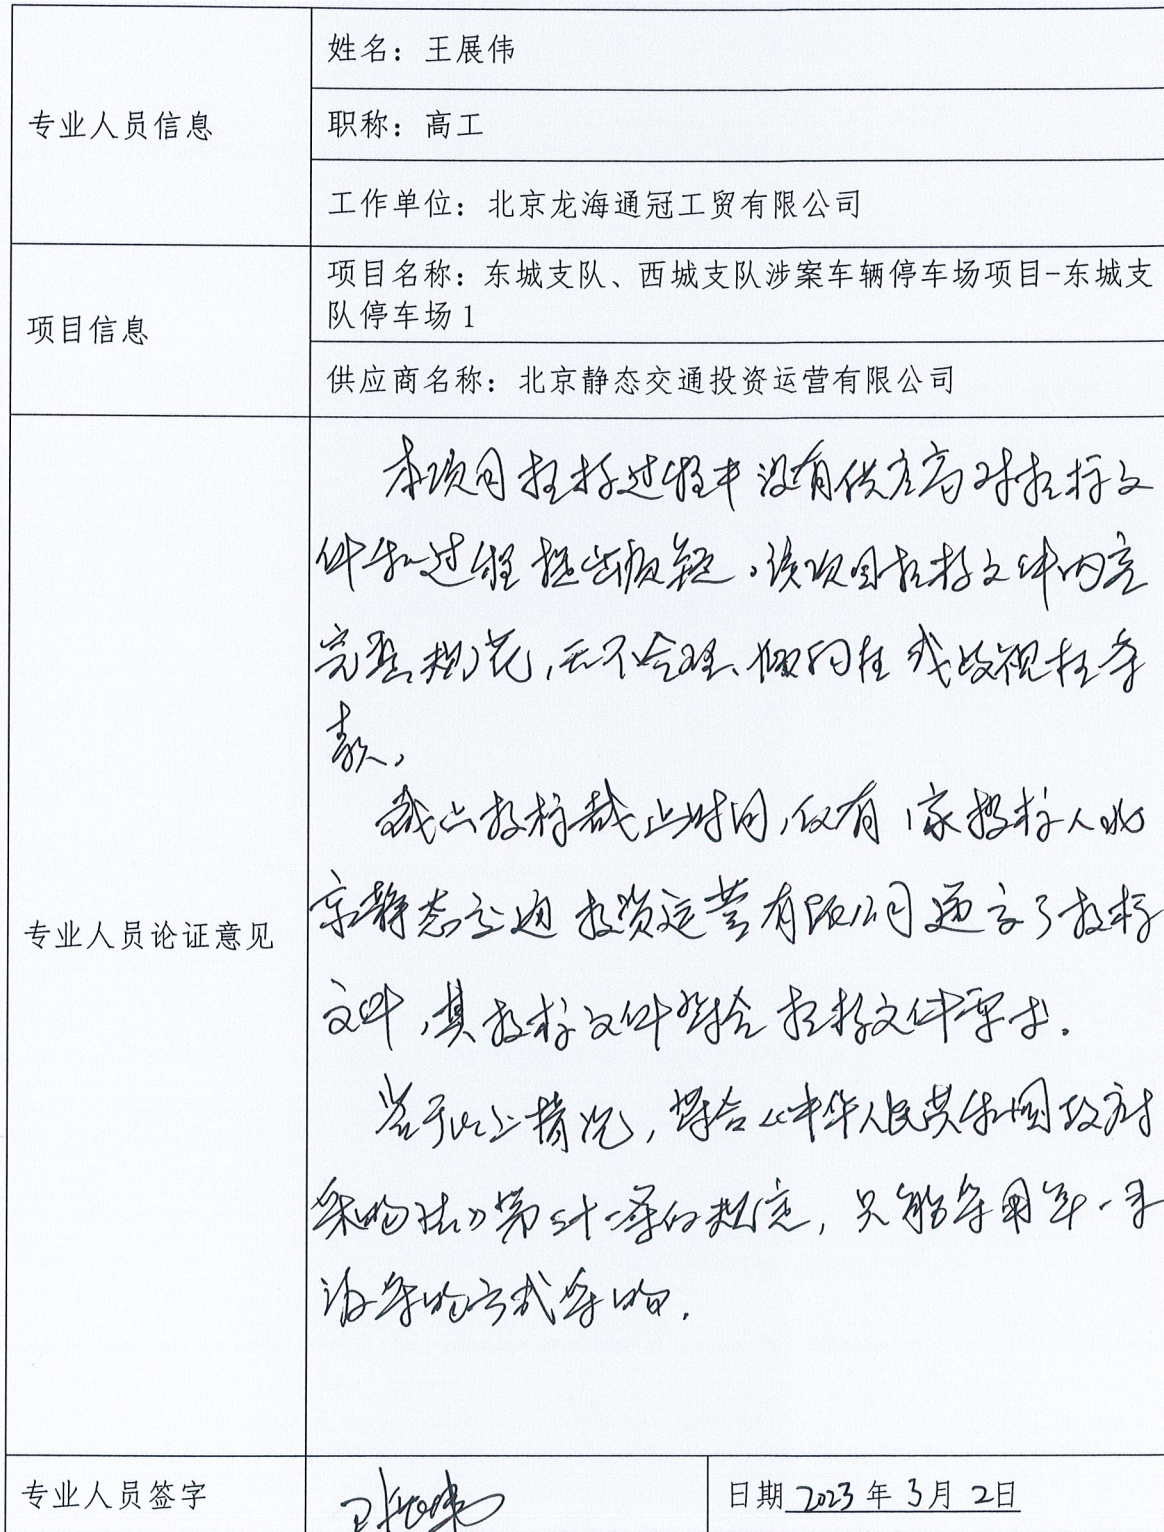 专业人员信息
姓名：王展伟
职称：高工
工作单位：北京龙海通冠工贸有限公司
项目信息
项目名称：东城支队、西城支队涉案车辆停车场项目-东城支
队停车场1
供应商名称：北京静态交通投资运营有限公司
专业人员论证意见
本项目招标过程中没有供应商对招标文
件和过程提出质疑。该项目招标文件内容
完整、规范，无不合理、倾向性或歧视性条
款。
截止投标截止时间，仅有1家投标人北
京静态交通投资运营有限公司递交了投标
文件，其投标文件符合招标文件要求。
鉴于以上情况，符合《中华人民共和国政府
采购法》第三十一条的规定，只能采用单一来
源采购方式采购.
专业人员签字
王展伟
日期 2023年3月2日